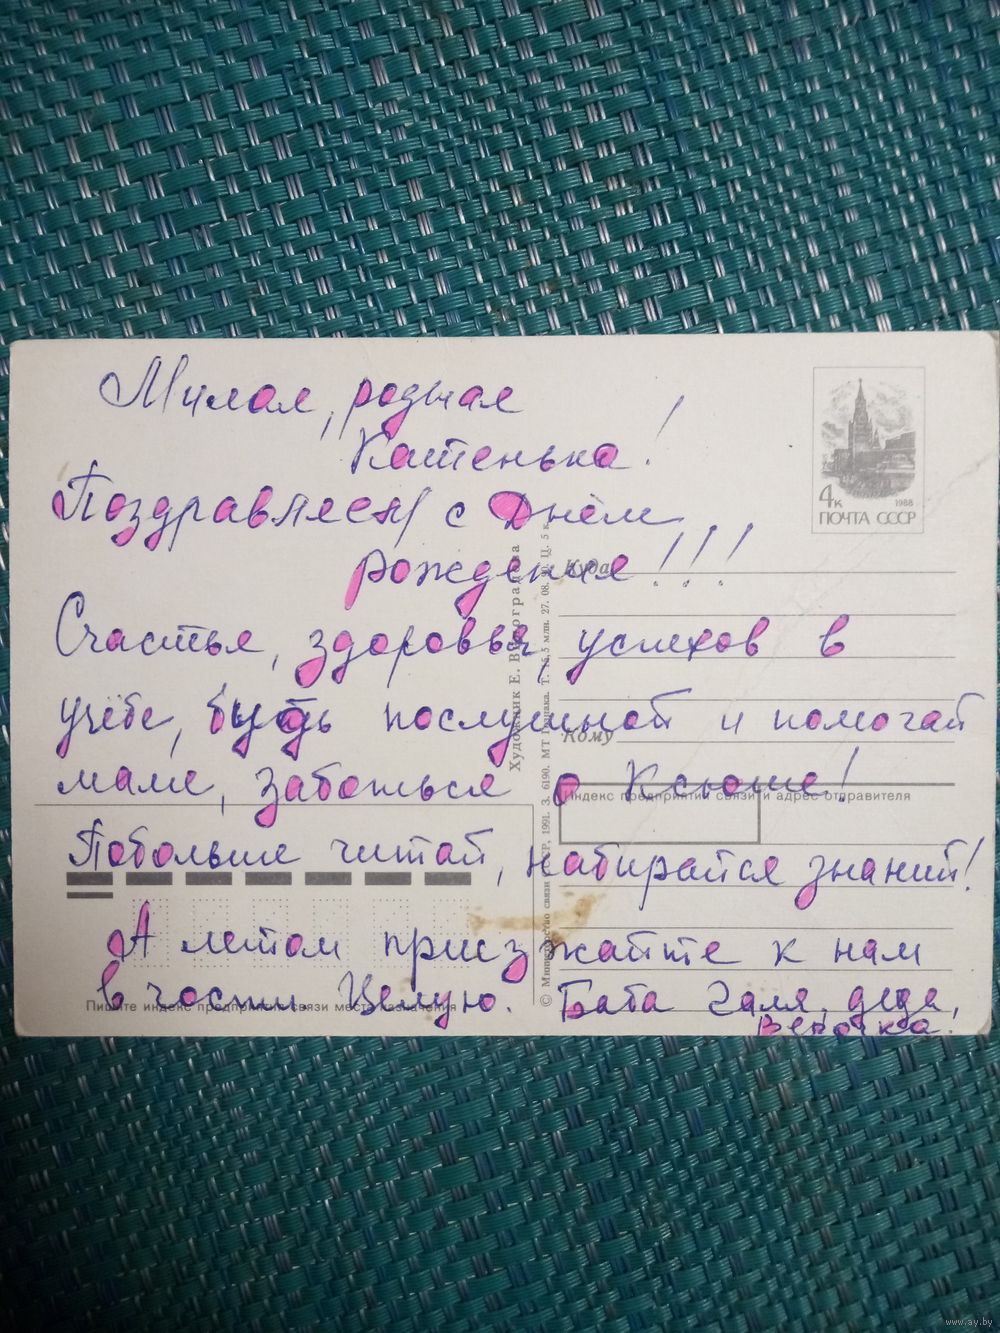 Милая, родная
Катенька!
Поздравляем с Днём
рождения!!!
Счастья, здоровья, успехов в
учёбе, будь послушной и помогай
маме, заботься о Ксюше!
Побольше читай, набирайся знаний!
А летом приезжайте к нам
в гости. Целую. Баба Галя, деда,
Верочка.
4к
1988
ПОЧТА СССР
Куда
Кому
Индекс предприятия связи и адрес отправителя
Пишите индекс предприятия связи места назначения
Художник Е. Виноградова
© Министерство связи СССР, 1991. З. 6190. МТ Гознака. Т. 15,5 млн. 27. 08. Ц. 5 к.
www.ay.by